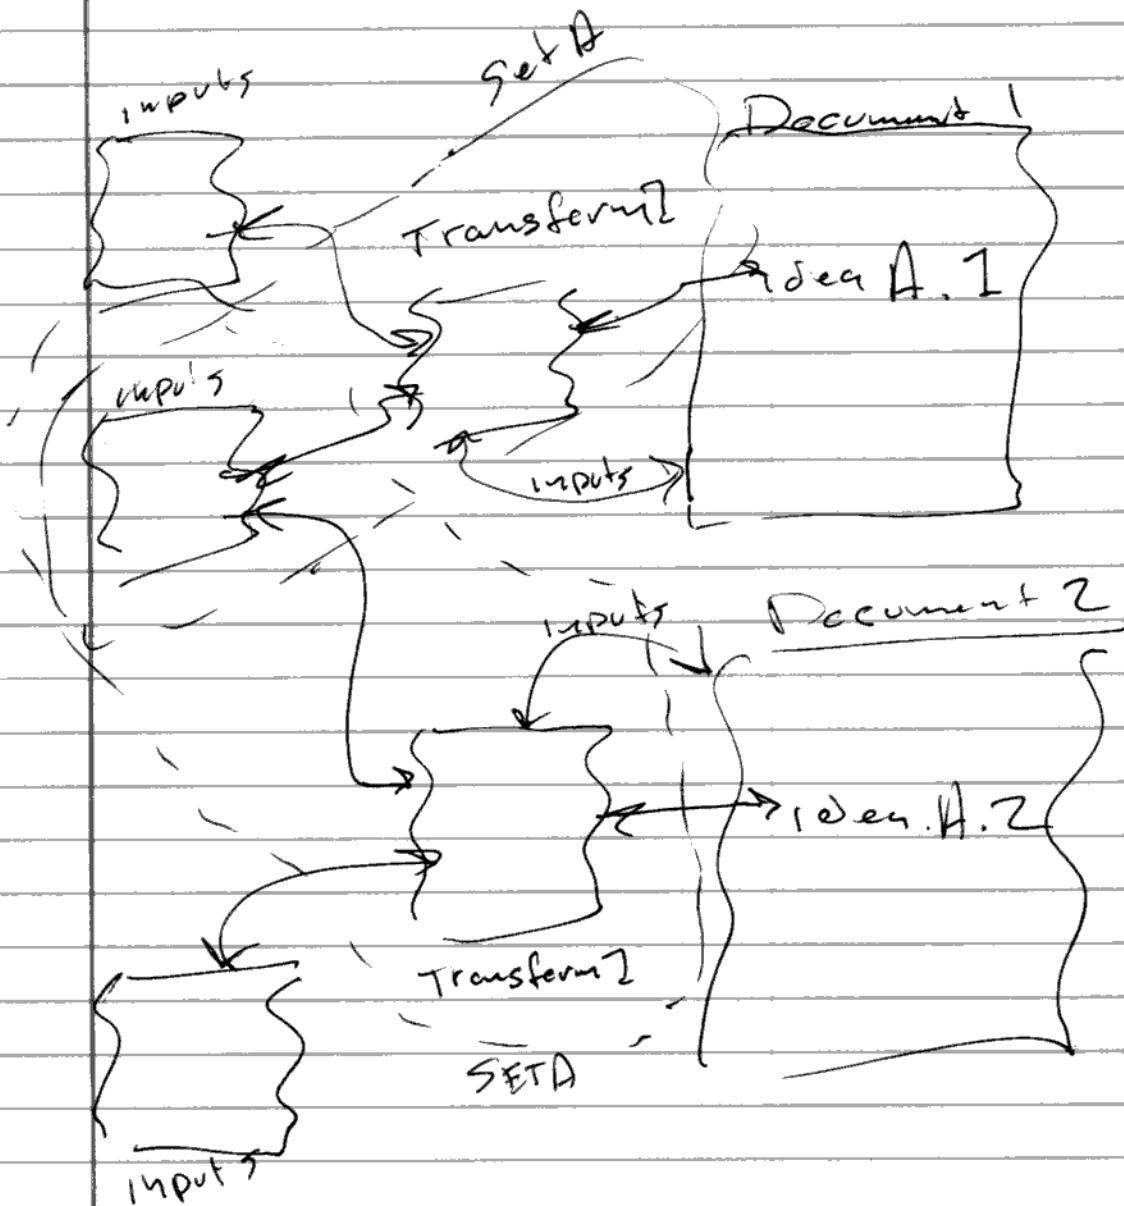 Set A
inputs
Document 1
Transform 2
idea A.1
inputs
inputs
inputs
Document 2
idea.A.2
Transform 2
SET A
inputs